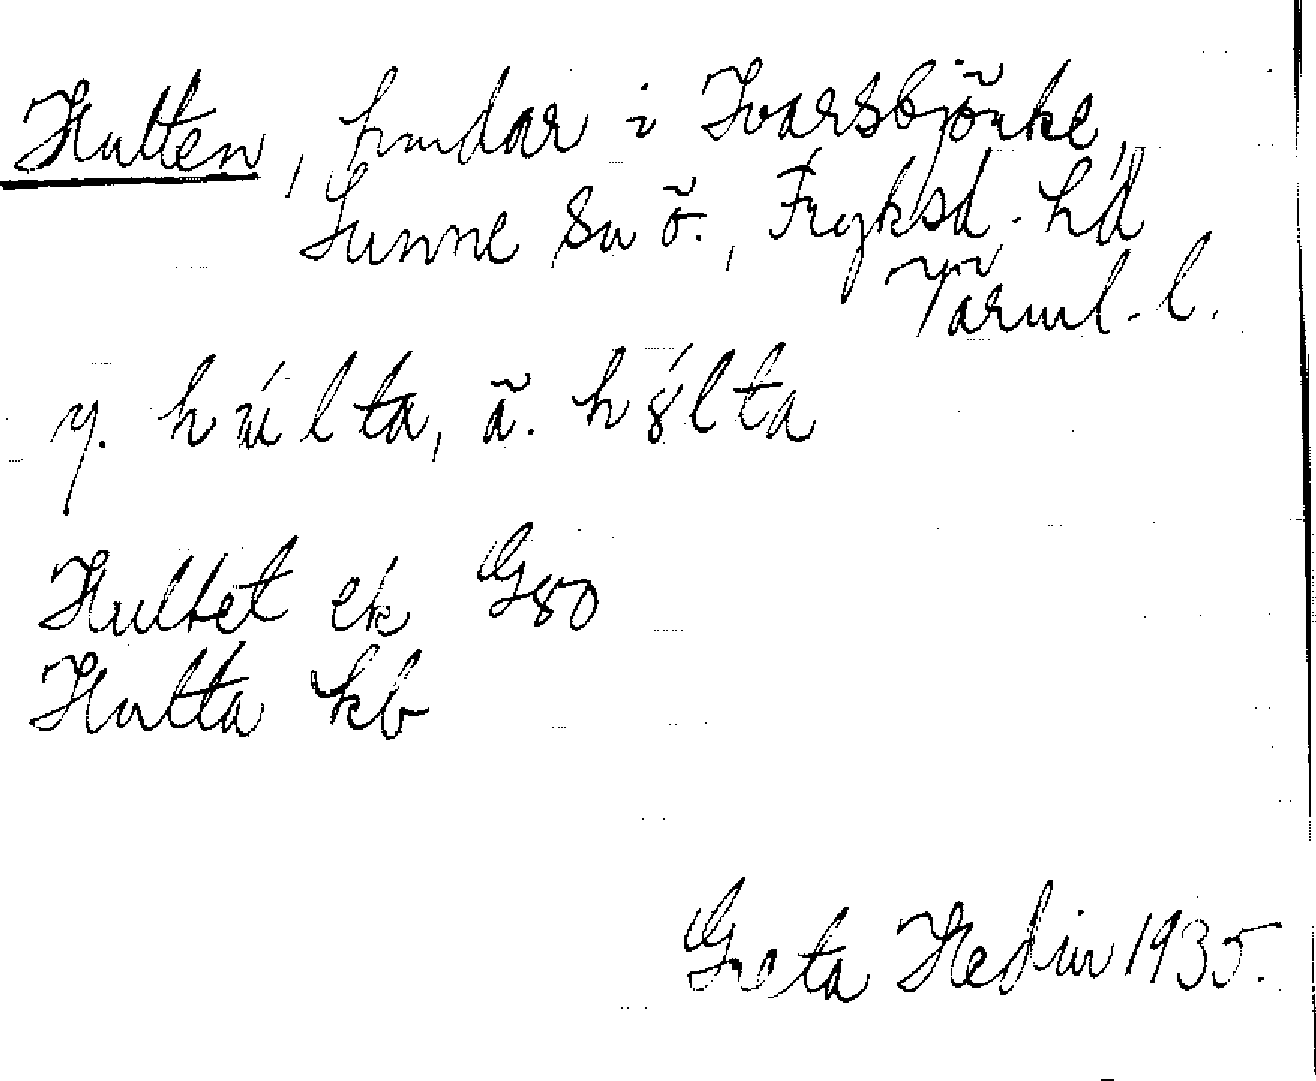 Hulten, lindar i Ivarsbjörke,
Sunne sn ö., Fryksd. hd
Värml. l.
y. húlta, ä. hólta
Hultet ek G80
Hulta kb
Greta Hedin 1935.